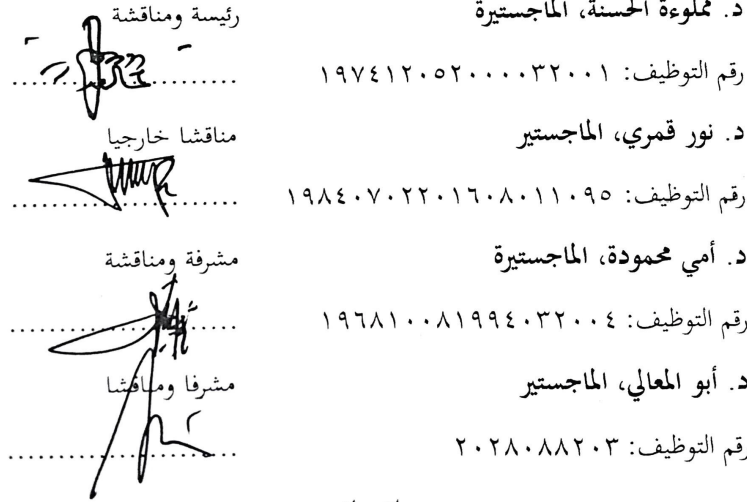 د. مملوءة الحسنة، الماجستيرة
رئيسة ومناقشة
رقم التوظيف: ١٩٧٤١٢٠٥٢٠٠٠٠٣٢٠٠١ ....................
د. نور قمري، الماجستير
مناقشا خارجيا
رقم التوظيف: ١٩٨٤٠٧٠٢٢٠١٦٠٨٠١١٠٩٥ ....................
د. أمي محمودة، الماجستيرة
مشرفة ومناقشة
رقم التوظيف: ١٩٦٨١٠٠٨١٩٩٤٠٣٢٠٠٤ ....................
د. أبو المعالي، الماجستير
مشرفا ومناقشا
رقم التوظيف: ٢٠٢٨٠٨٨٢٠٣ ....................